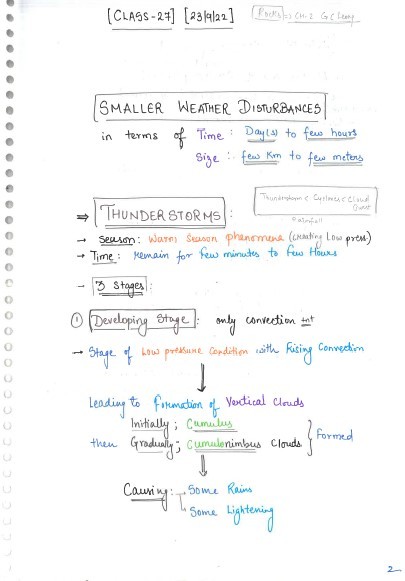 [CLASS-27] [23/9/22]
Rocks => CH-2 G C Leong
SMALLER WEATHER DISTURBANCES
in terms of Time : Day(s) to few hours
Size : few Km to few meters
Thunderstorm < Cyclones < Cloud
Burst
Rainfall
⇒ THUNDERSTORMS :
→ Season: Warm Season phenomena (creating Low press)
→ Time: Remain for few minutes to few Hours
- 3 Stages :
① Developing Stage : only convection
→ Stage of Low pressure Condition with Rising Convection
↓
Leading to Formation of Vertical Clouds
Initially ; Cumulus
then Gradually ; Cumulonimbus Clouds } Formed
↓
Causing : → Some Rains
→ Some Lightening
2